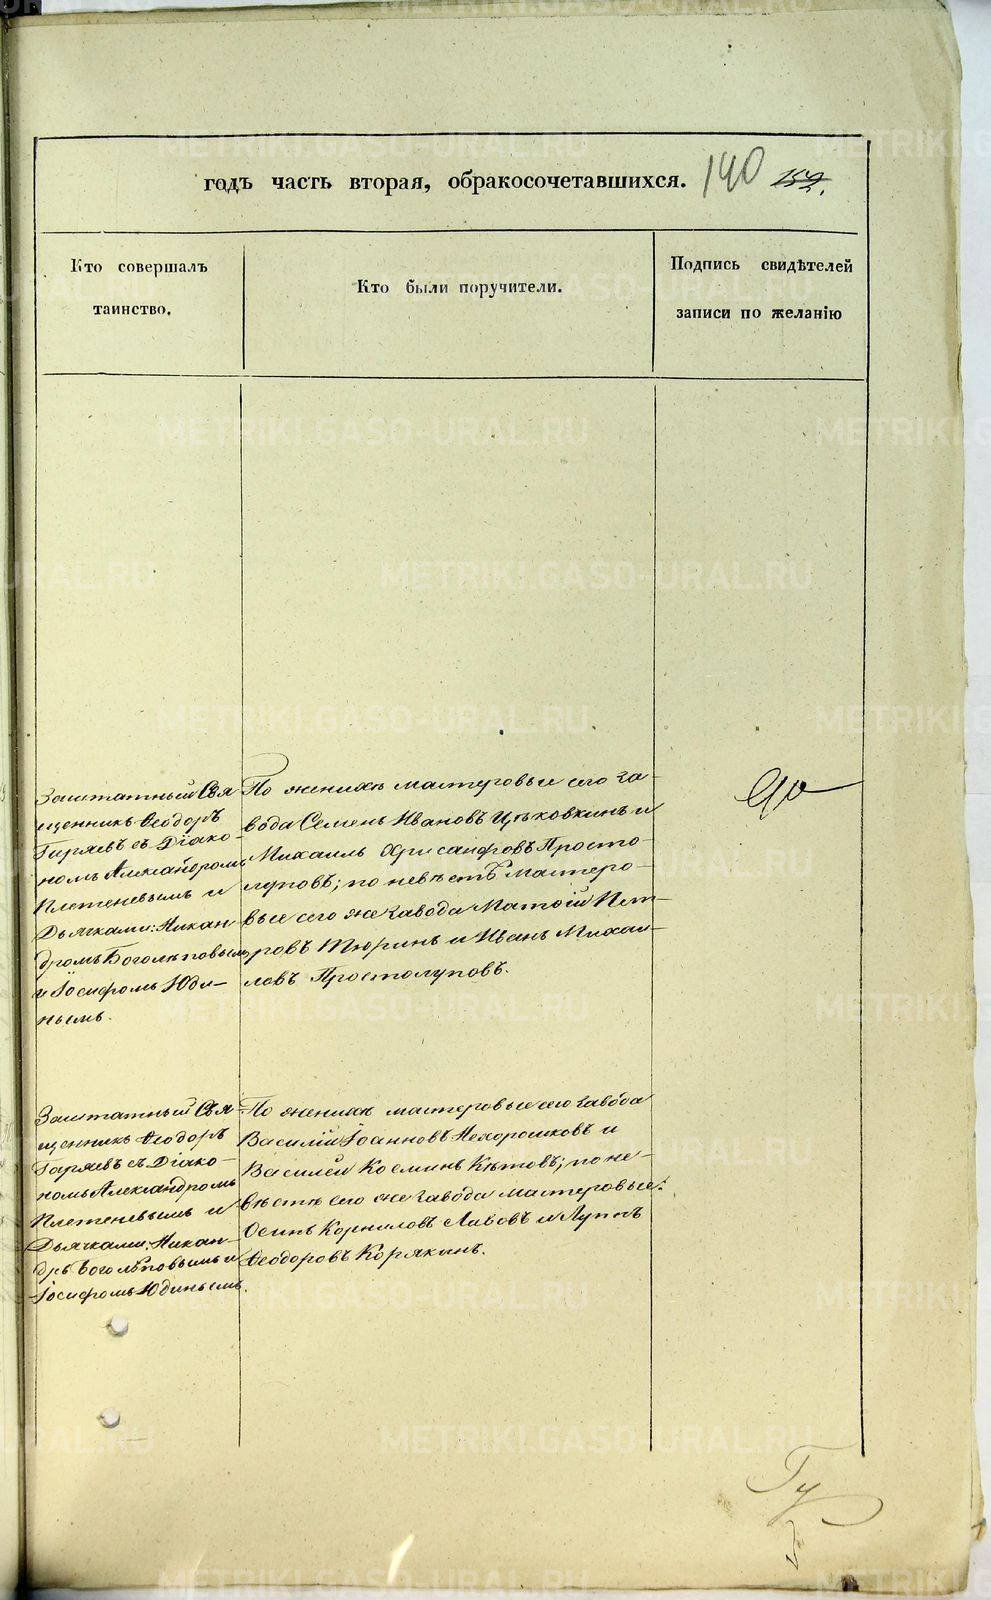 годъ часть вторая, обракосочетавшихся.
140
Кто совершалъ
таинство.
Кто были поручители.
Подпись свидѣтелей
записи по желанію
Заштатный Свя
щенникъ Ѳеодоръ
Гиряевъ съ Діако-
номъ Александромъ
Плетеневымъ и
Дьячками: Никан
дромъ Боголѣповымъ
и Іосифомъ Юди-
нымъ.
По женихѣ мастеровые сего за-
вода Семенъ Ивановъ Цѣховкинъ и
Михаилъ Хрисанфовъ Просто-
луповъ; по невѣстѣ Мастеро-
вые сего же завода Матѳій Пет-
ровъ Тюринъ и Иванъ Михаи-
ловъ Простолуповъ.
Заштатный Свя-
щенникъ Ѳеодоръ
Гаряевъ съ Діако-
номъ Александромъ
Плетеневымъ и
Дьячками: Никан-
дръ Боголѣповымъ и
Іосифомъ Юдинымъ.
По женихѣ мастеровые сего завода
Василій Іоанновъ Нехорошковъ и
Василей Косминъ Кѣтовъ; по не-
вѣстѣ сего же завода мастеровые:
Осипъ Корниловъ Лавовъ и Луппъ
Ѳеодоровъ Корякинъ.
METRIKI.GASO-URAL.RU